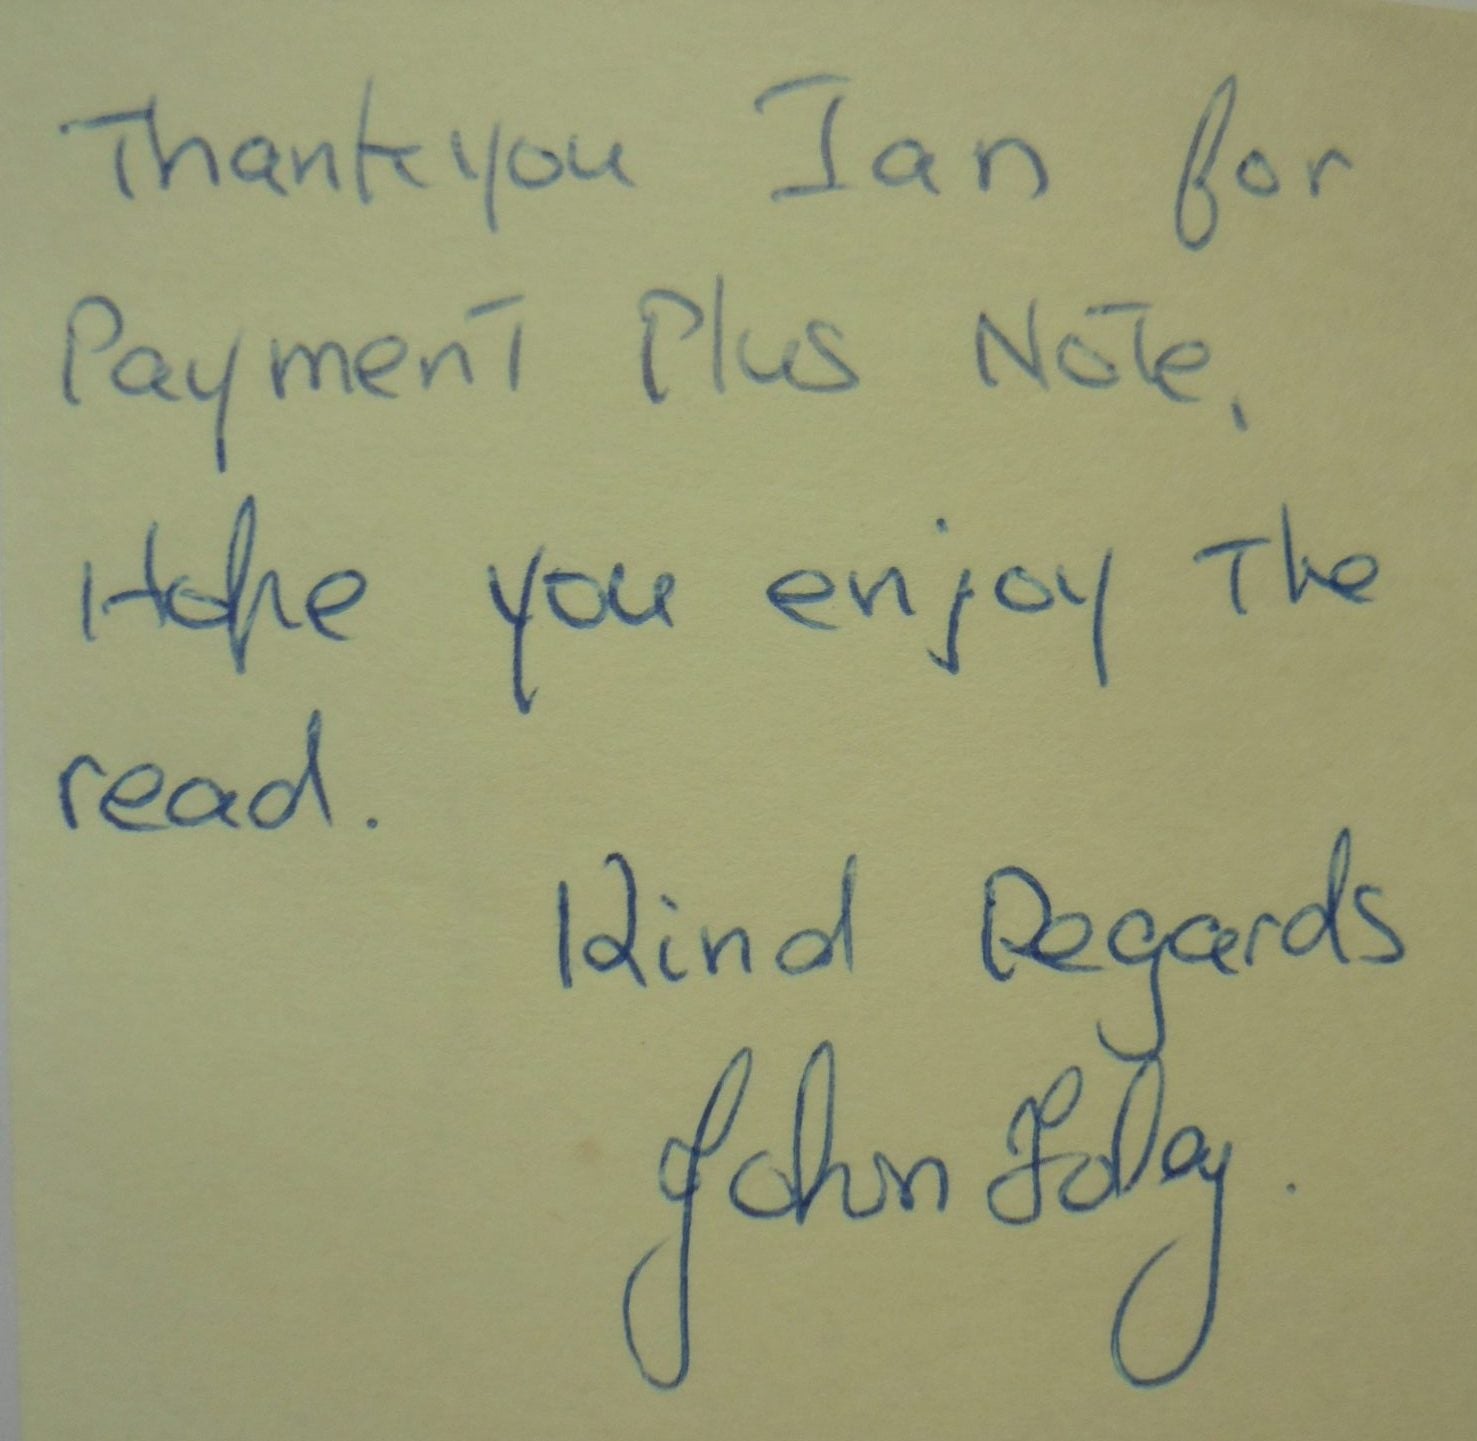 Thankyou Ian for
Payment Plus Note,
Hope you enjoy The
read.
Kind Regards
John Foley.